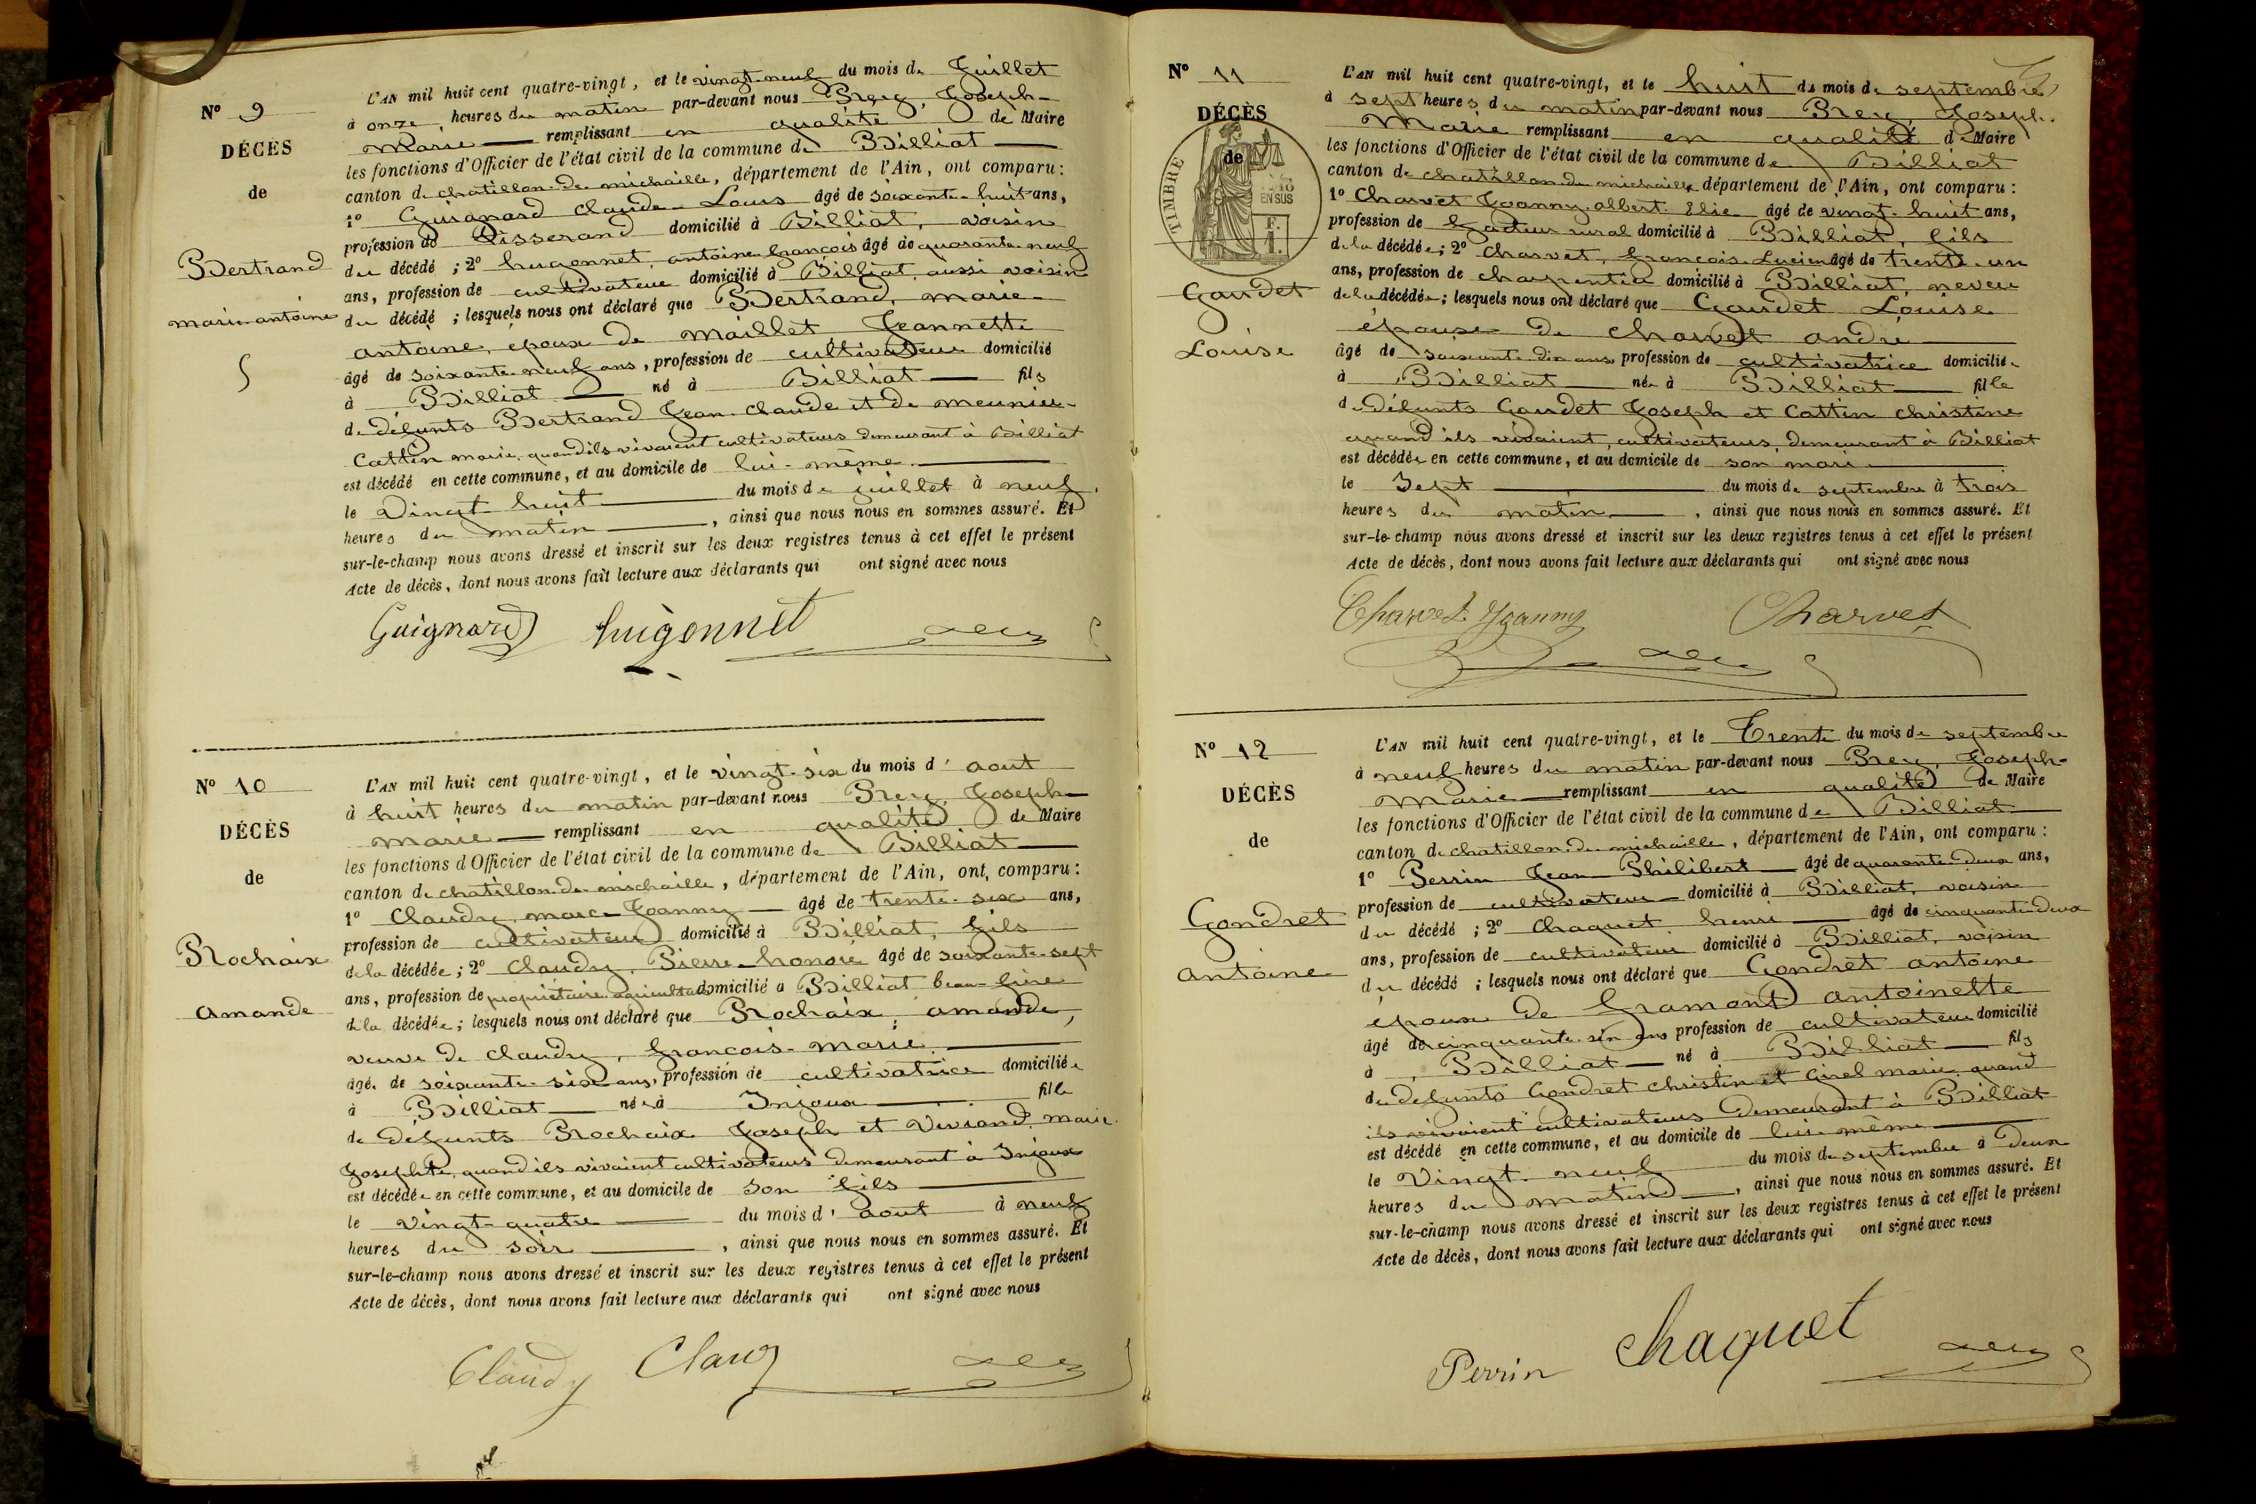 N° 9
DÉCÈS
de
Bertrand
marie antoine
L'AN mil huit cent quatre-vingt, et le vingt-neuf du mois de Juillet
à onze heures du matin par-devant nous Prey, Joseph-
Marie remplissant en qualité de Maire
les fonctions d'Officier de l'état civil de la commune de Billiat
canton de chatillon-de-michaille, département de l'Ain, ont comparu :
1° Guignard Claude-Louis âgé de soixante-huit ans,
profession de Tisserand domicilié à Billiat, voisin
du décédé ; 2° hugonnet, antoine françois âgé de quarante-neuf
ans, profession de cultivateur domicilié à Billiat, aussi voisin
du décédé ; lesquels nous ont déclaré que Bertrand, marie-
antoine, époux de Maillet Jeannette
âgé de soixante-neuf ans, profession de cultivateur domicilié
à Billiat né à Billiat fils
de défunts Bertrand Jean-Claude et de meunier-
Cattin marie, quand ils vivaient cultivateurs demeurant à Billiat
est décédé en cette commune, et au domicile de lui-même
le Vingt-huit du mois de juillet à neuf
heures du matin, ainsi que nous nous en sommes assuré. Et
sur-le-champ nous avons dressé et inscrit sur les deux registres tenus à cet effet le présent
Acte de décès, dont nous avons fait lecture aux déclarants qui ont signé avec nous
Guignard hugonnet
N° 10
DÉCÈS
de
Rochaix
Amande
L'AN mil huit cent quatre-vingt, et le vingt-six du mois d'aout
à huit heures du matin par-devant nous Prey, Joseph-
marie remplissant en qualité de Maire
les fonctions d'Officier de l'état civil de la commune de Billiat
canton de chatillon-de-mischaille, département de l'Ain, ont comparu :
1° Claudy, marc-Joanny âgé de trente-six ans,
profession de cultivateur domicilié à Billiat, fils
de la décédée ; 2° Claudy, Pierre-honoré âgé de soixante-sept
ans, profession de propriétaire agriculteur domicilié à Billiat beau-frère
de la décédée ; lesquels nous ont déclaré que Rochaix, amande,
veuve de Claudy, françois-marie
âgé de soixante-six ans, profession de cultivatrice domiciliée
à Billiat née à Injoux fille
de défunts Rochaix Joseph et Viviand, marie
Josephte, quand ils vivaient cultivateurs demeurant à Injoux
est décédée en cette commune, et au domicile de son fils
le vingt-quatre du mois d'aout à neuf
heures du soir, ainsi que nous nous en sommes assuré. Et
sur-le-champ nous avons dressé et inscrit sur les deux registres tenus à cet effet le présent
Acte de décès, dont nous avons fait lecture aux déclarants qui ont signé avec nous
Claudy Claudy
N° 11
DÉCÈS
de
TIMBRE
EN SUS
Gaudet
Louise
L'AN mil huit cent quatre-vingt, et le huit du mois de septembre
à sept heures du matin par-devant nous Prey, Joseph-
Marie remplissant en qualité de Maire
les fonctions d'Officier de l'état civil de la commune de Billiat
canton de chatillon-de-michaille département de l'Ain, ont comparu :
1° Charvet Joanny-albert-Elie âgé de vingt-huit ans,
profession de facteur rural domicilié à Billiat, fils
de la décédée ; 2° Charvet, françois-Lucien âgé de trente-un
ans, profession de charpentier domicilié à Billiat, neveu
de la décédée ; lesquels nous ont déclaré que Gaudet Louise
épouse de Charvet andré
âgé de soixante-dix ans, profession de cultivatrice domiciliée
à Billiat née à Billiat fille
de Défunts Gaudet Joseph et Cattin Christine
quand ils vivaient, cultivateurs demeurant à Billiat
est décédée en cette commune, et au domicile de son mari
le Sept du mois de septembre à trois
heures du matin, ainsi que nous nous en sommes assuré. Et
sur-le-champ nous avons dressé et inscrit sur les deux registres tenus à cet effet le présent
Acte de décès, dont nous avons fait lecture aux déclarants qui ont signé avec nous
Charvet Joanny Charvet
N° 12
DÉCÈS
de
Gondret
antoine
L'AN mil huit cent quatre-vingt, et le Trente du mois de septembre
à neuf heures du matin par-devant nous Prey, Joseph-
Marie remplissant en qualité de Maire
les fonctions d'Officier de l'état civil de la commune de Billiat
canton de chatillon-de-michaille, département de l'Ain, ont comparu :
1° Perrin Jean Philibert âgé de quarante-deux ans,
profession de cultivateur domicilié à Billiat, voisin
du décédé ; 2° Chaquet henri âgé de cinquante-deux
ans, profession de cultivateur domicilié à Billiat, voisin
du décédé ; lesquels nous ont déclaré que Gondret antoine
époux de Gramont antoinette
âgé de cinquante-six ans profession de cultivateur domicilié
à Billiat né à Billiat fils
de défunts Gondret Christin et Girel marie, quand
ils vivaient cultivateurs demeurant à Billiat
est décédé en cette commune, et au domicile de lui-même
le Vingt-neuf du mois de septembre à Deux
heures du matin, ainsi que nous nous en sommes assuré. Et
sur-le-champ nous avons dressé et inscrit sur les deux registres tenus à cet effet le présent
Acte de décès, dont nous avons fait lecture aux déclarants qui ont signé avec nous
Perrin Chaquet